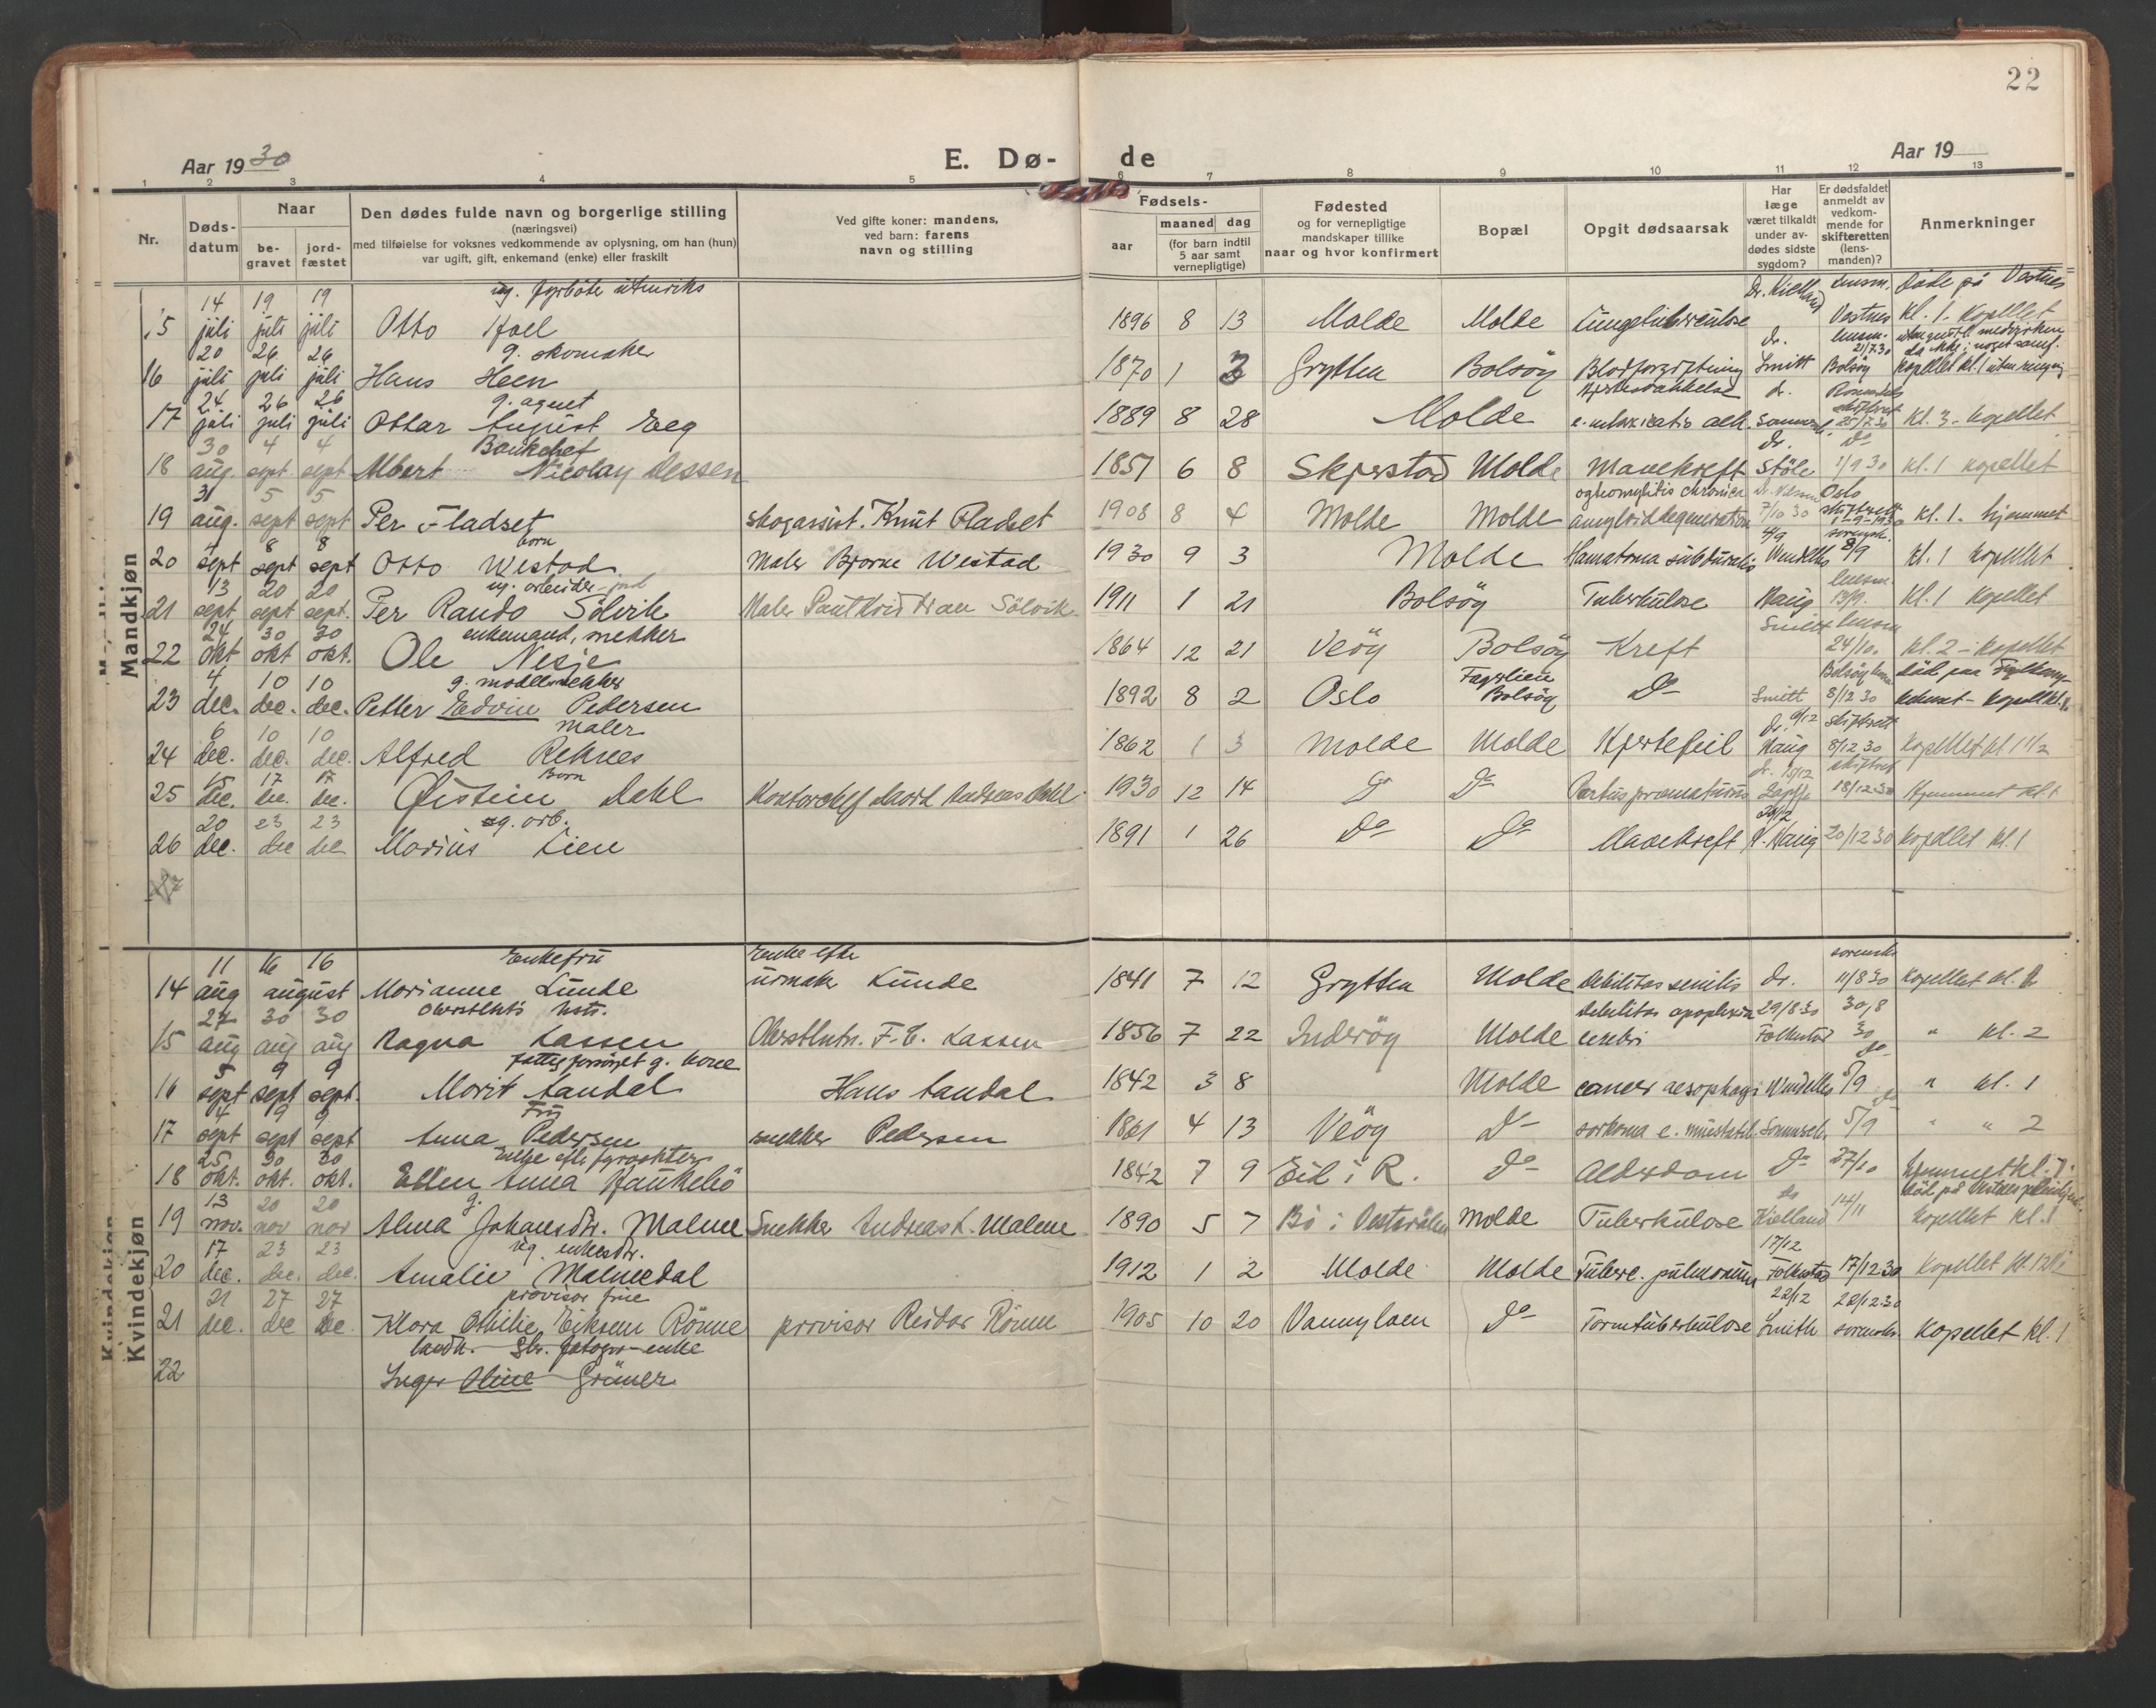 22
Aar 1930
E. Dø- de
Aar 19
1 2 3 4 5 6 7 8 9 10 11 12 13
Nr.
Døds-
datum
Naar
be-
gravet
jord-
fæstet
Den dødes fulde navn og borgerlige stilling
(næringsvei)
med tilføielse for voksnes vedkommende av oplysning, om han (hun)
var ugift, gift, enkemand (enke) eller fraskilt
Ved gifte koner: mandens,
ved barn: farens
navn og stilling
Fødsels-
aar
maaned dag
(for barn indtil
5 aar samt
vernepligtige)
Fødested
og for vernepligtige
mandskaper tillike
naar og hvor konfirmert
Bopæl
Opgit dødsaarsak
Har
læge
været tilkaldt
under av-
dødes sidste
sygdom?
Er dødsfaldet
anmeldt av
vedkom-
mende for
skifteretten
(lens-
manden)?
Anmerkninger
Mandkjøn
14 19 19 ug. fyrbøter utenriks Dr. Kielland lensm. Døde på Vestnes
15 juli juli juli Otto 1896 8 13 Molde Molde Lungetuberculose Vestnes kl. 1. kapellet
20 26 26 g. skomaker dr. lensm. 21/7.30
16 juli juli juli Hans Heen 1870 1 Grytten Bolsöy Blodforgiftning Smitt Bolsöy kapellet kl. 1 uten ringing
24 26 26 g. agent dr. Romsdals
17 juli juli juli Ottar August Eeg 1889 8 28 Molde 25/7.30 kl. 3 - kapellet
30 4 4 Bankchef dr. do
18 aug. sept. sept Albert Nicolay Dessen 1851 6 8 Skjerstad Molde Mavekreft Støle 1/9 30 kl. 1 kapellet
31 5 5 chronica Oslo
19 aug. sept sept Per Fladset skogassist. Knut Fladset 1908 8 4 Molde Molde amyloiddegeneration 7/10 30 skifterett 1-9-1930 kl. 1. hjemmet
8 8 barn 4/9 sorensk.
20 sept sept sept Otto Westad Maler Bjarne Westad 1930 9 3 Molde Hæmatoma subduralis 8/9 kl. 1 kapellet
13 20 20 ug. arbeider lensm.
21 sept sept sept. Per Rando Sölvik Maler Sölvik 1911 1 21 Bolsöy Tuberkulose Haug 13/9. kl. 1 kapellet
24 30 30 enkemand, snekker Smitt lensm
22 okt okt okt. Ole Nesje 1864 12 21 Veöy Bolsöy Kreft 24/10. kl. 2 - kapellet
4 10 10 g. modellsnekker Fagerlien Bolsöy död paa Fylkessyke-
23 dec. dec. dec. Petter Edvin Pedersen 1892 8 2 Oslo Bolsöy Do Smitt 8/12 30
6 10 10 maler dr. 6/12 skifterett
24 dec. dec. dec. Alfred Reknes 1862 1 3 Molde Molde Hjertefeil Haug 8/12 30 kapellet kl. 1 1/2
15 17 17 Barn dr. 15/12 skifteret
25 dec. dec. dec. Øistein Dahl Kontorchef Andreas Dahl 1930 12 14 Do Do Partus præmaturus 18/12 30 Hjemmet kl. 1
20 23 23 ug. arb. 20/12
26 dec. dec dec Marius Lien 1891 1 26 Do Do Mavekreft Haug 20/12 30 kapellet kl. 1
27
Kvindekjøn
11 16 16 Enkefru Enke efter sorensk.
14 aug august Marianne Lunde urmaker Lunde 1841 7 12 Grytten Molde Debilitas senilis dr. 11/8 30 kapellet kl.
27 30 30 Oberstltnts hstr. Debilitas apoplexia 29/8 30 30/8
15 aug aug aug Ragna Lassen Oberstltntn. F. C. Lassen 1856 7 22 Inderöy Molde cerebri Folkestad 30 " kl. 2
5 9 9 fattigforsörget g. kone do
16 sept sept sept. Marit Aandal Hans Aandal 1842 3 8 Molde cancer aesophagi 5/9 " kl. 1
4 9 9 Fru do
17 sept sept sept Anna Pedersen snekker Pedersen 1861 4 13 Veöy Do sarkoma 5/9 " " 2
25 30 30 Enke efter fyrvokter
18 okt. okt. okt. Ellen Anna Haukebö 1842 7 9 Eid i R. Do Alderdom Do 27/10 hjemmet kl. 1.
13 20 20 g. do död på Vestnes pleiehjem
19 nov. nov nov Alma Johansdtr. Malme Snekker Andreas L. Malme 1890 5 7 Bö i Vesterålen Molde Tuberkulose Kielland 14/11 kapellet kl. 1
17 23 23 ug. enkesdtr. 17/12
20 dec. dec. dec. Amalie Malmedal 1912 1 2 Molde Molde Tuberc. pulmonum Folkestad 17/12 30 kapellet kl. 12 1/2
21 27 27 provisor frue 22/12 22/12 30
21 dec. dec dec. Klara Othilie Eiksem Rönne provisor Reidar Rönne 1905 10 20 Vannylven Do Tarmtuberkulose Smith sorensk. kapellet kl. 1
landh. Gbr. fotogr. enke
22 Inger Oline Grüner